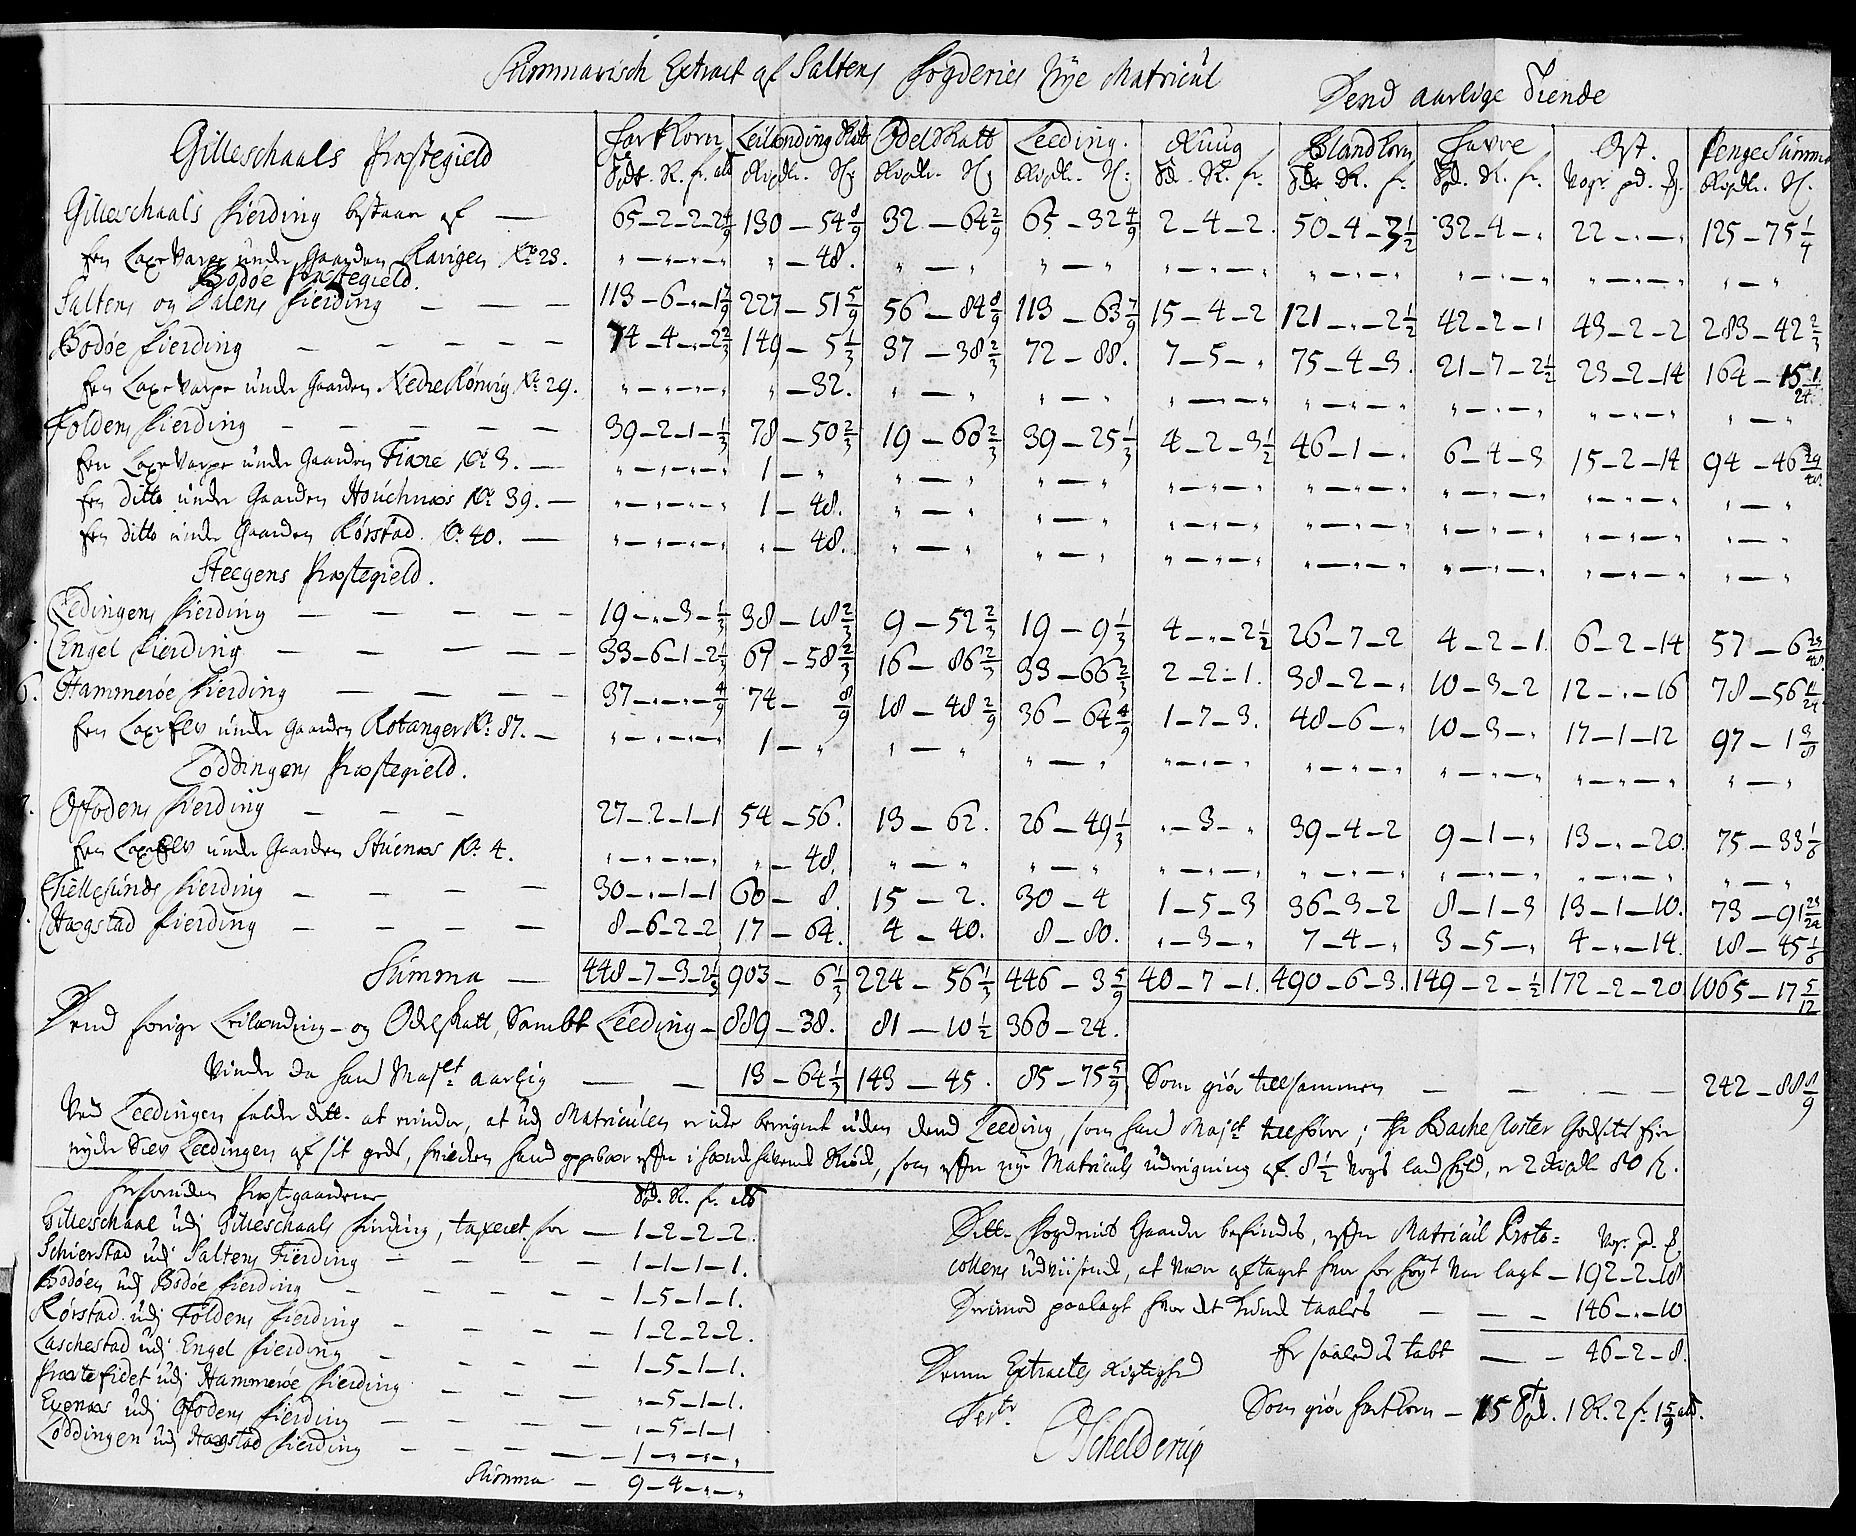 Summarisch Extract af Saltens Fogderies Nye Matricul
Dend aarlige Tiende
Gilleschaals Præstegield | HartKorn | Leilænding Skat | OdelsKatt | Leeding. | Ruug | BlandKorn | Havre | Ost. | Penge Summa
Gilleschaals Fierding bestaar af — | 65-2-2-2 4/9 | 130-54 8/9 | 32-64 2/9 | 65-32 4/9 | 2-4-2. | 50-4-3 1/2 | 32-4-„ | 22-„-„ | 125-75 1/4
Een LaxeVarpe under Gaarden Kavigen No 23. | „-„-„-„ | „-48. | „-„ | „-„ | „-„-„ | „-„-„ | „-„-„ | „-„-„ | „-„
Bodøe Præstegield.
Saltens og Dalens Fierding — — — | 113-6-„-1 7/9 | 227-51 5/9 | 56-84 8/9 | 113-63 7/9 | 15-4-2 | 121-„-2 1/2 | 42-2-1 | 43-2-2 | 283-42 2/3
Bodøe Fierding — — — — — | 74-4-„-2 2/3 | 149-5 1/3 | 37-38 2/3 | 72-88. | 7-5-„ | 75-4-3. | 21-7-2 1/2 | 23-2-14 | 164-15 1/24
Een LaxeVarpe under Gaarden Nedre Kønvig No 29. | „-„-„-„ | „-32. | „-„ | „-„ | „-„-„ | „-„-„ | „-„-„ | „-„-„ | „-„
Foldens Fierding — — — — — | 39-2-1-1/3 | 78-50 2/3 | 19-60 2/3 | 39-25 1/3 | 4-2-3 1/2 | 46-1-„ | 6-4-3 | 15-2-14 | 94-46 29/48
Een LaxeVarpe under Gaarden Fiære No 3. — | „-„-„-„ | 1-„ | „-„ | „-„ | „-„-„ | „-„-„ | „-„-„ | „-„-„ | „-„
Een ditto under Gaarden Houchnæs No 39. — | „-„-„-„ | 1-48. | „-„ | „-„ | „-„-„ | „-„-„ | „-„-„ | „-„-„ | „-„
Een ditto under Gaarden Rørstad. No 40. — | „-„-„-„ | „-48. | „-„ | „-„ | „-„-„ | „-„-„ | „-„-„ | „-„-„ | „-„
Steegens Præstegield.
Ledingens Fierding — — — — — | 19-„-3-1/3 | 38-18 2/3 | 9-52 2/3 | 19-9 1/3 | 4-„-2 1/2 | 26-7-2 | 4-2-1. | 6-2-14 | 57-6 23/48
Engel Fierding — — — — — | 33-6-1-2 1/3 | 67-58 2/3 | 16-86 2/3 | 33-66 2/3 | 2-2-1. | 38-2-„ | 10-3-2 | 12-„-16 | 78-56 11/24
6. Hammerøe Fierding — — — — | 37-„-„-4/9 | 74-8/9 | 18-48 2/9 | 36-64 4/9 | 1-7-3. | 48-6-„ | 10-3-„ | 17-1-12 | 97-1 3/8
Een LaxeElv under Gaarden Kobanger No 87. — | „-„-„-„ | 1-„ | „-„ | „-„ | „-„-„ | „-„-„ | „-„-„ | „-„-„ | „-„
Loddingens Præstegield.
7. Offodens Fierding — — — | 27-2-1-1 | 54-56. | 13-62. | 26-49 1/3 | „-3-„ | 39-4-2 | 9-1-„ | 13-„-20. | 75-33 1/8
Een LaxeElv under Gaarden Stuenæs No 4. | „-„-„-„ | „-48. | „-„ | „-„ | „-„-„ | „-„-„ | „-„-„ | „-„-„ | „-„
Tiellesunds Fierding — — — — | 30-„-1-1 | 60-8. | 15-2. | 30-4 | 1-5-3 | 36-3-2 | 8-1-3 | 13-1-10. | 73-91 23/24
Hægstad Fierding — — — — | 8-6-2-2 | 17-64. | 4-40. | 8-80. | „-3-„ | 7-4-„ | 3-5-„ | 4-„-14. | 18-45 1/8
Summa — | 448-7-3-2 1/3 | 903-6 1/3 | 224-56 1/3 | 446-3 5/9 | 40-7-1. | 490-6-3. | 149-2-1/2 | 172-2-20 | 1065-17 5/12
Dend forige Leilænding- og Odelskatt, Sambt Leeding- | 889-38. | 81-10 1/2 | 360-24.
Vinder da hans Mayt aarlig — — | 13-64 1/3 | 143-45. | 85-75 5/9 | Som giør tillsammen — — — — | 242-88 8/9
Ved Leedingen falder dette at minder, at udj Matriculen er icke beregnet uden dend Leeding, som hans Mayt tillhører; Hr Bache Closter Godsets Eier
nyder Self Leedingen af sit gods, hvilcken hand oppebær efter i hænde hafvende Skiøde, som efter nye Matriculs udregning af 8 1/2 Vogs landskyld, er 2 Rixdlr 80 s.
Foruden Præstegaardene | Td. S. f. alb
Gilleschaal udj Gilleschaals Fierding, taxeret for — 1-2-2-2.
Schierstad udj Saltens Fierding — — — — 1-1-1-1.
Bodøen udj Bodøe Fierding — — — — 1-5-1-1.
Rørstad udj Foldens Fierding — — — — 1-2-2-2.
Laschestad udj Engel Fierding — — — — 1-5-1-1.
Præsteeidet udj Hammerøe Fierding — — — „-5-1-1.
Evenæs udj Offodens Fierding — — — — „-5-1-1
Loddingen udj Hægstad Fierding — — — — 1-„-„-„
Summa — 9-4-„-„
Dette Fogderies Gaarder befindes, efter Matricul Proto= | Vogr. pd. [mk]
collens udviisende, at være aftaget hvor for høyt var lagt — 192-2-18
Derimod paalagt hvor det kunde taales — — 146-„-10
Er saaledes tabt — — 46-2-8.
Denne Extractes Rigtighed
Som giør hartkorn — 15 Td. 1 S. 2 f. 1 5/9 alb.
Testr
Schelderup